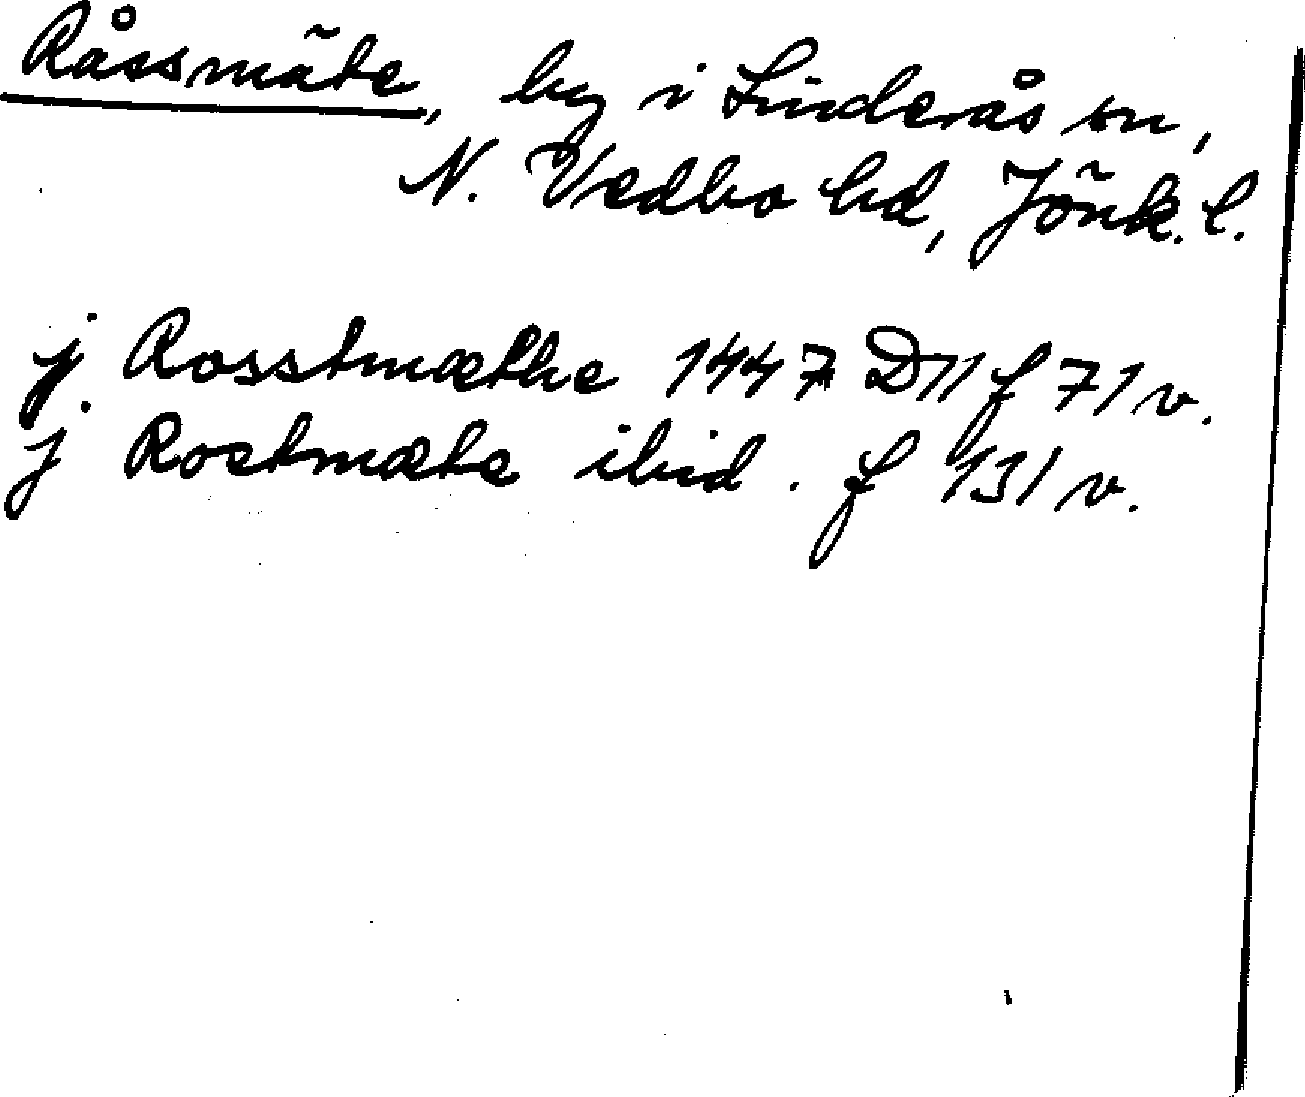 Råssmäte, by i Linderås sn,
N. Vedbo hd, Jönk. l.
j Rosstmæthe 1447 D11 f 71 v.
j Rostmæte ibid. f 131 v.